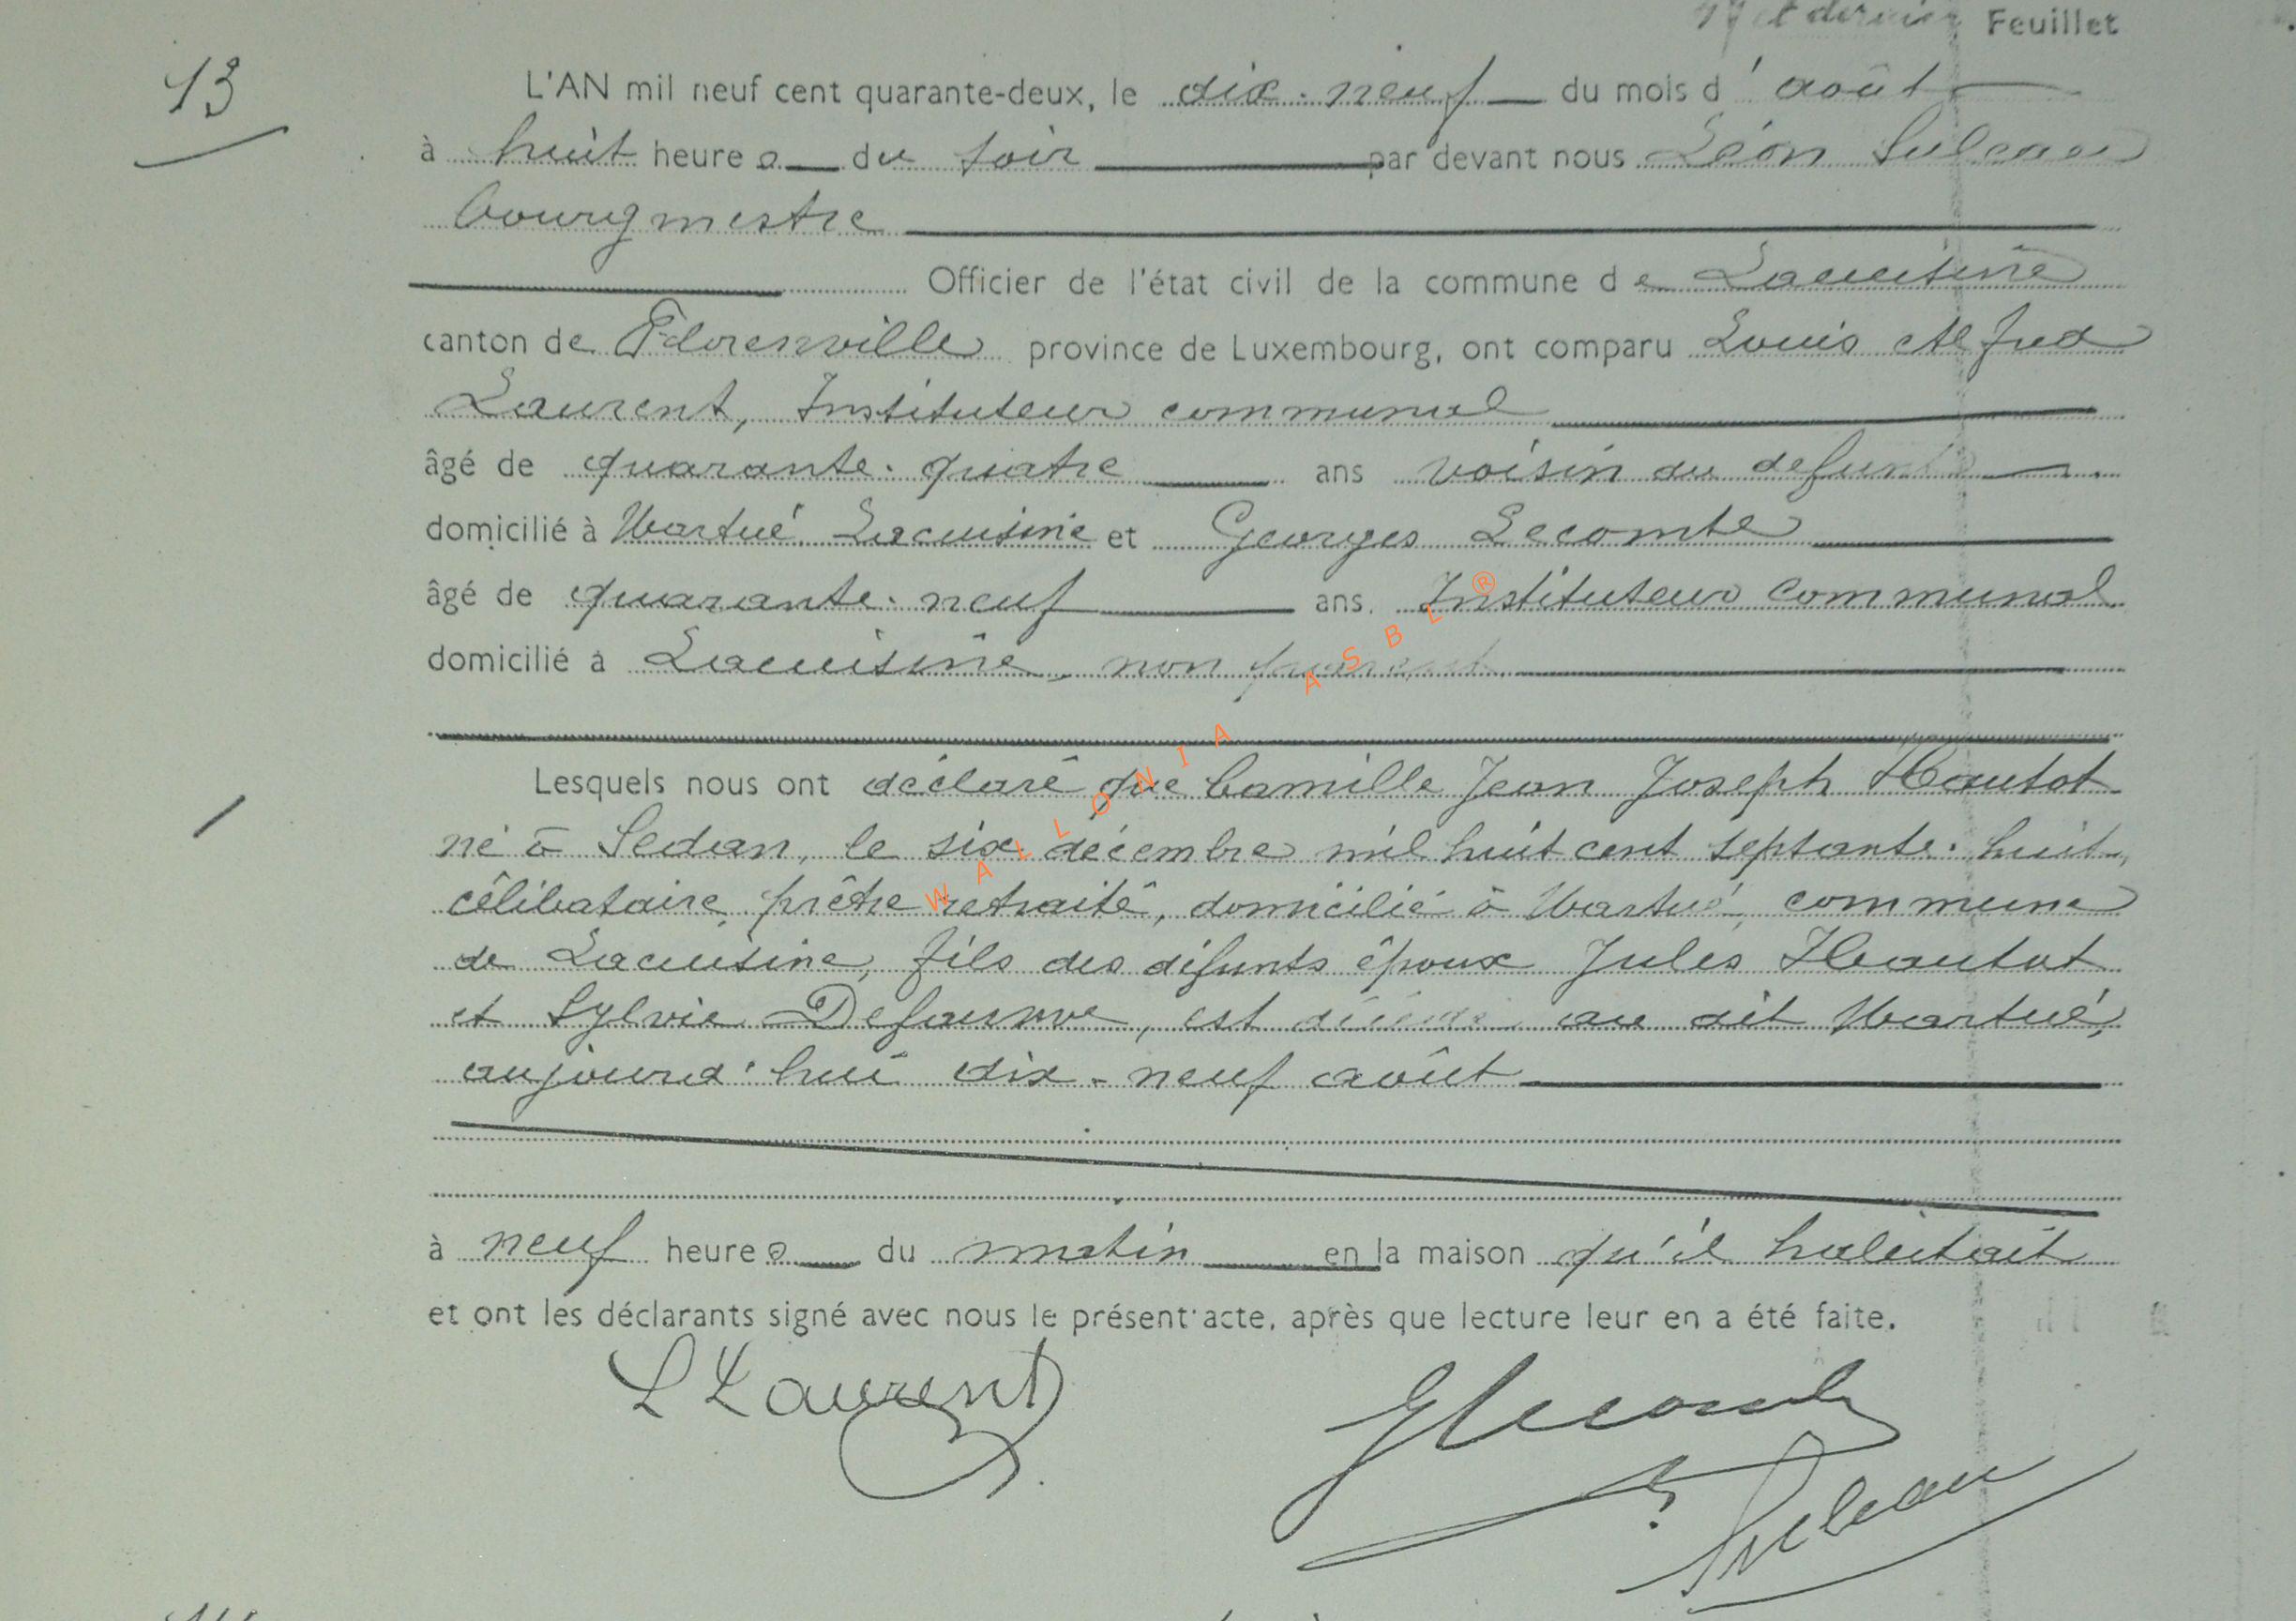 et dernier Feuillet
13
L'AN mil neuf cent quarante-deux, le dix-neuf du mois d'août
à huit heures du soir par devant nous Léon Suleau
bourgmestre
Officier de l'état civil de la commune de Lacuisine
canton de Florenville province de Luxembourg, ont comparu Louis Alfred
Laurent, Instituteur communal
âgé de quarante-quatre ans voisin du defunt
domicilié à Martué Lacuisine et Georges Lecomte
âgé de quarante-neuf ans, Instituteur communal
domicilié à Lacuisine, non parent
Lesquels nous ont déclaré que Camille Jean Joseph Hautot
né à Sedan, le six décembre mil huit cent septante-huit,
célibataire, prêtre retraité, domicilié à Martué, commune
de Lacuisine, fils des défunts époux Jules Hautot
et Sylvie, est décédé au dit Martué,
aujourd'hui dix-neuf août
à neuf heures du matin en la maison qu'il habitait
et ont les déclarants signé avec nous le présent acte, après que lecture leur en a été faite.
L Laurent
G Lecomte
Suleau
WALLONIA ASBL ®